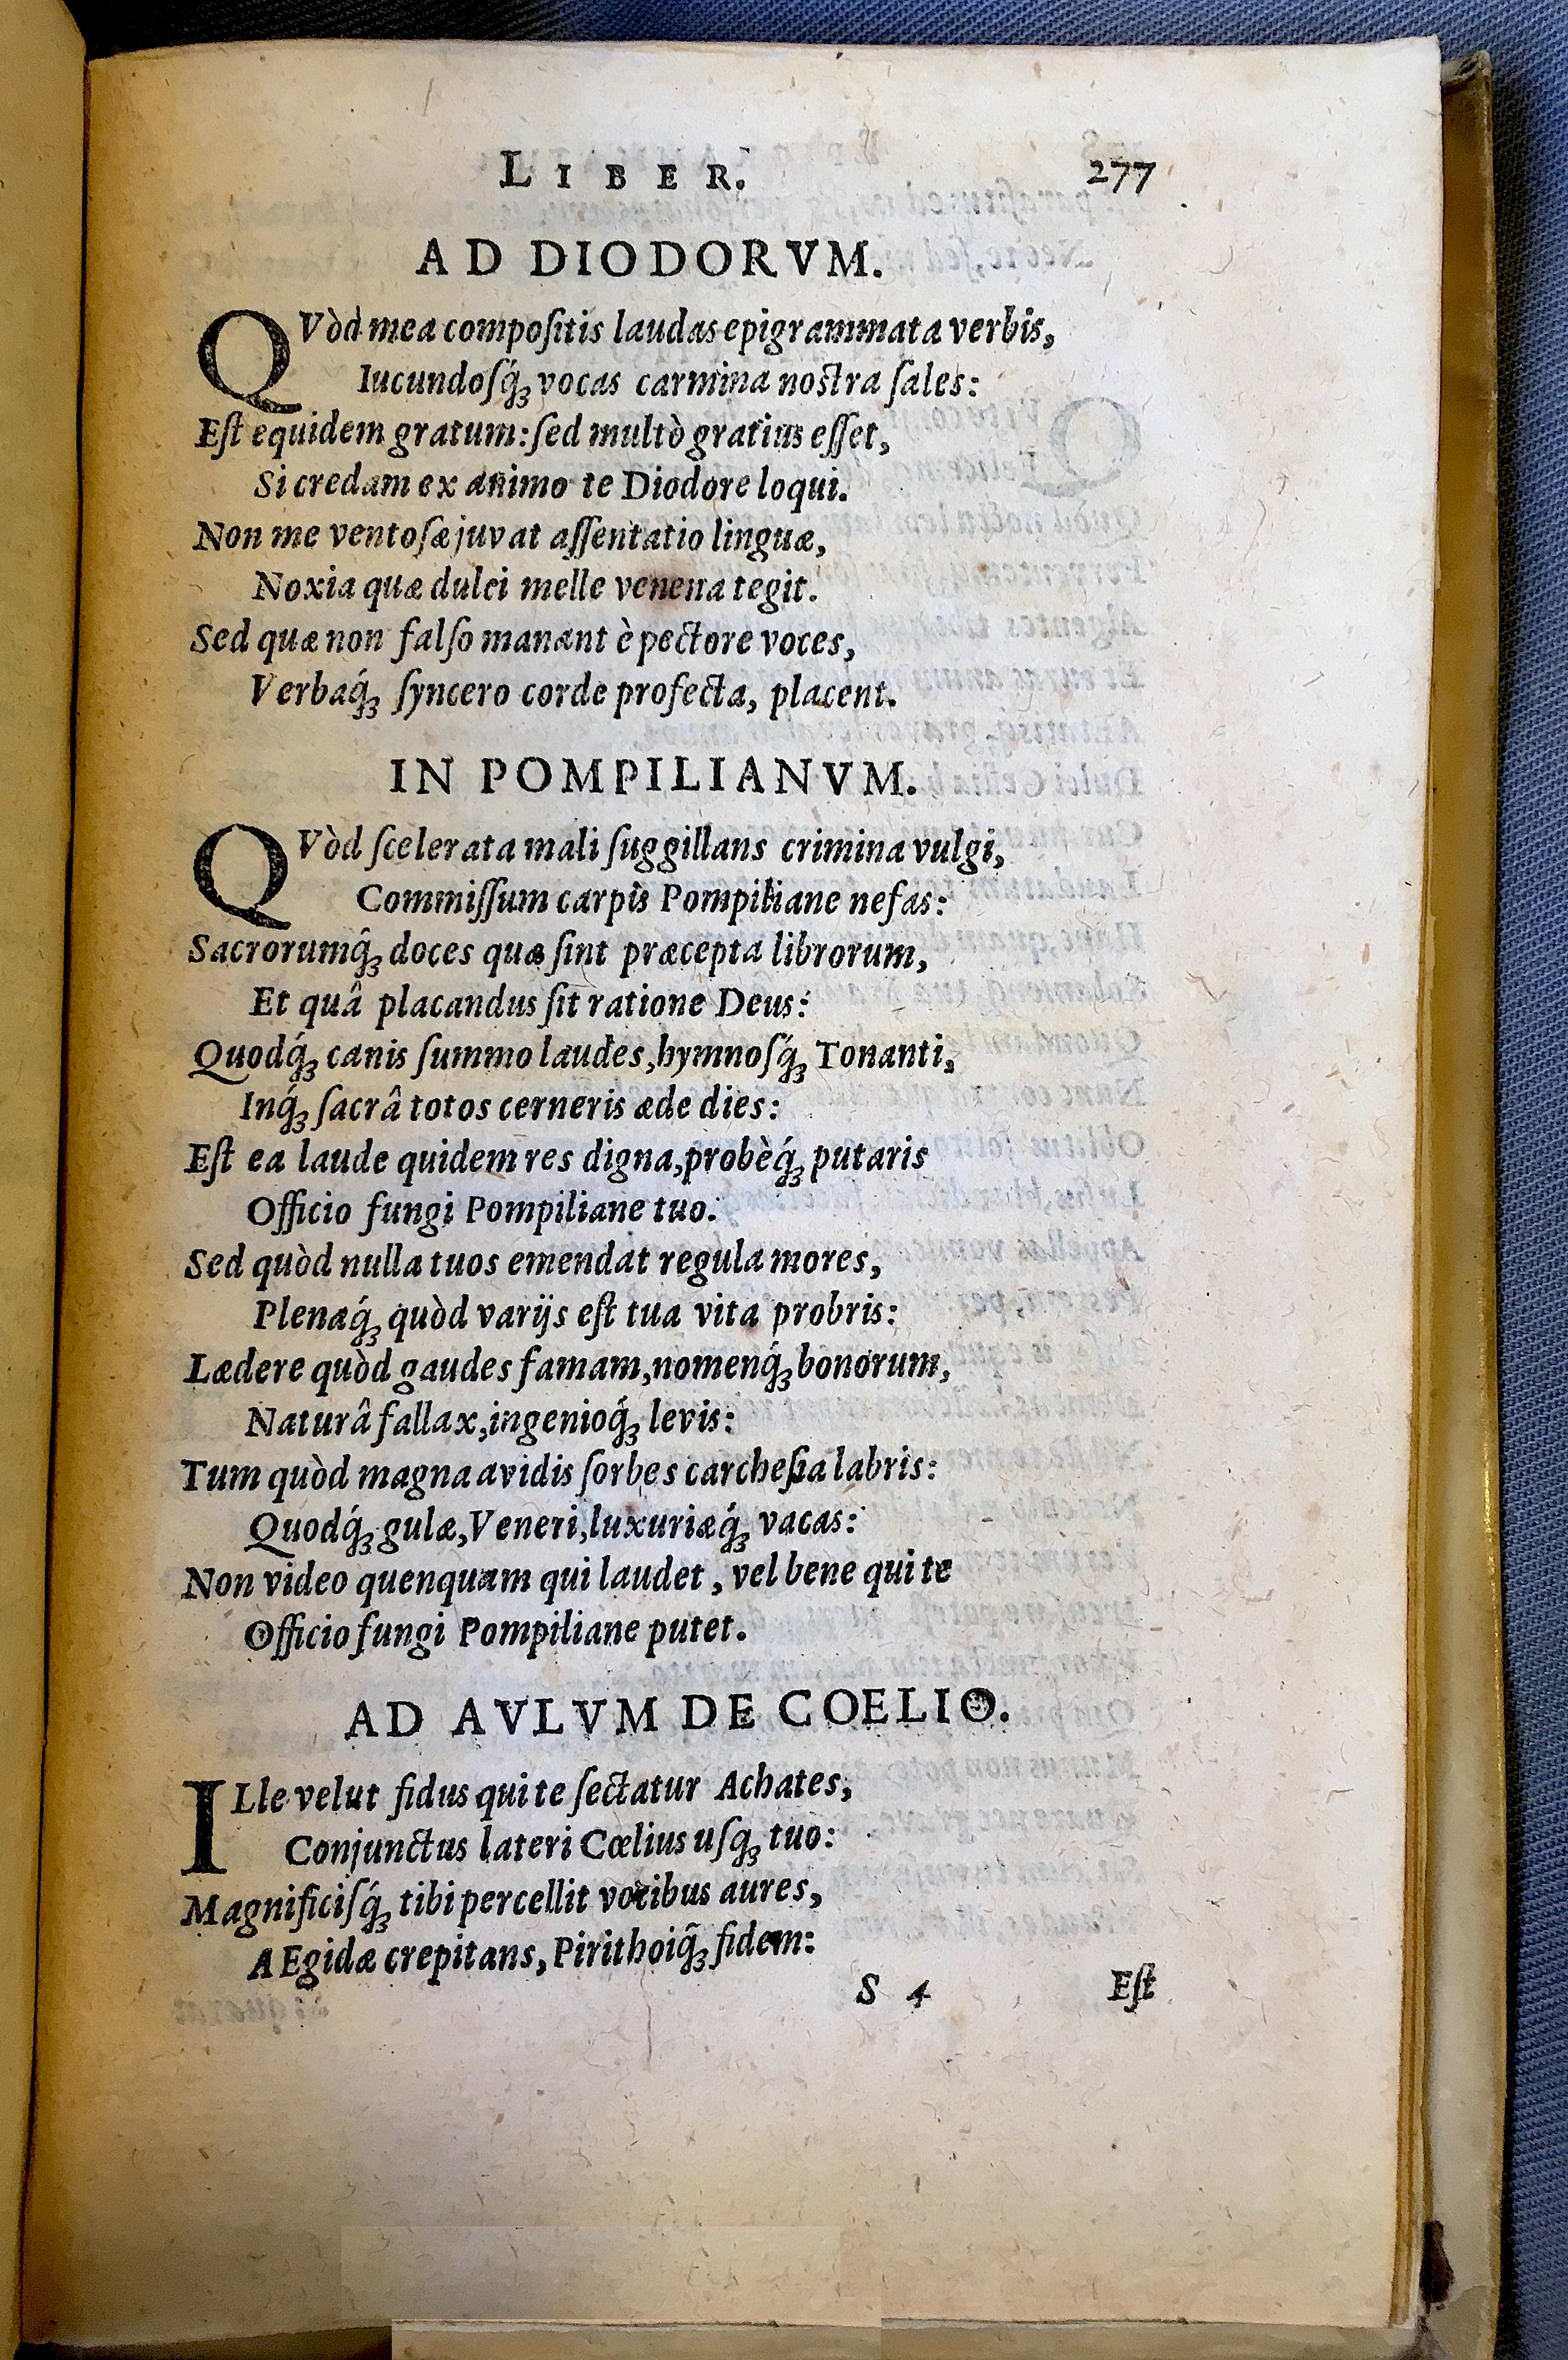 LIBER. 277
AD DIODORVM.
QVòd mea compoſitis laudas epigrammata verbis,
Iucundoſq́ꝫ vocas carmina noſtra ſales:
Eſt equidem gratum: ſed multò gratius eſſet,
Si credam ex animo te Diodore loqui.
Non me ventoſæ juvat aſſentatio linguæ,
Noxia quæ dulci melle venena tegit.
Sed quæ non falſo manant è pectore voces,
Verbaq́ꝫ ſyncero corde profecta, placent.
IN POMPILIANVM.
QVòd ſcelerata mali ſuggillans crimina vulgi,
Commiſſum carpis Pompiliane nefas:
Sacrorumq́ꝫ doces quæ ſint præcepta librorum,
Et quâ placandus ſit ratione Deus:
Quodq́ꝫ canis ſummo laudes, hymnoſq́ꝫ Tonanti,
Inq́ꝫ ſacrâ totos cerneris æde dies:
Eſt ea laude quidem res digna, probèq́ꝫ putaris
Officio fungi Pompiliane tuo.
Sed quòd nulla tuos emendat regula mores,
Plenaq́ꝫ quòd varijs eſt tua vita probris:
Lædere quòd gaudes famam, nomenq́ꝫ bonorum,
Naturâ fallax, ingenioq́ꝫ levis:
Tum quòd magna avidis ſorbes carcheſia labris:
Quodq́ꝫ gulæ, Veneri, luxuriæq́ꝫ vacas:
Non video quenquam qui laudet, vel bene qui te
Officio fungi Pompiliane putet.
AD AVLVM DE COELIO.
ILle velut fidus qui te ſectatur Achates,
Conjunctus lateri Cœlius uſq́ꝫ tuo:
Magnificiſq́ꝫ tibi percellit vocibus aures,
AEgidæ crepitans, Pirithoiq̃ꝫ fidem:
S 4 Eſt